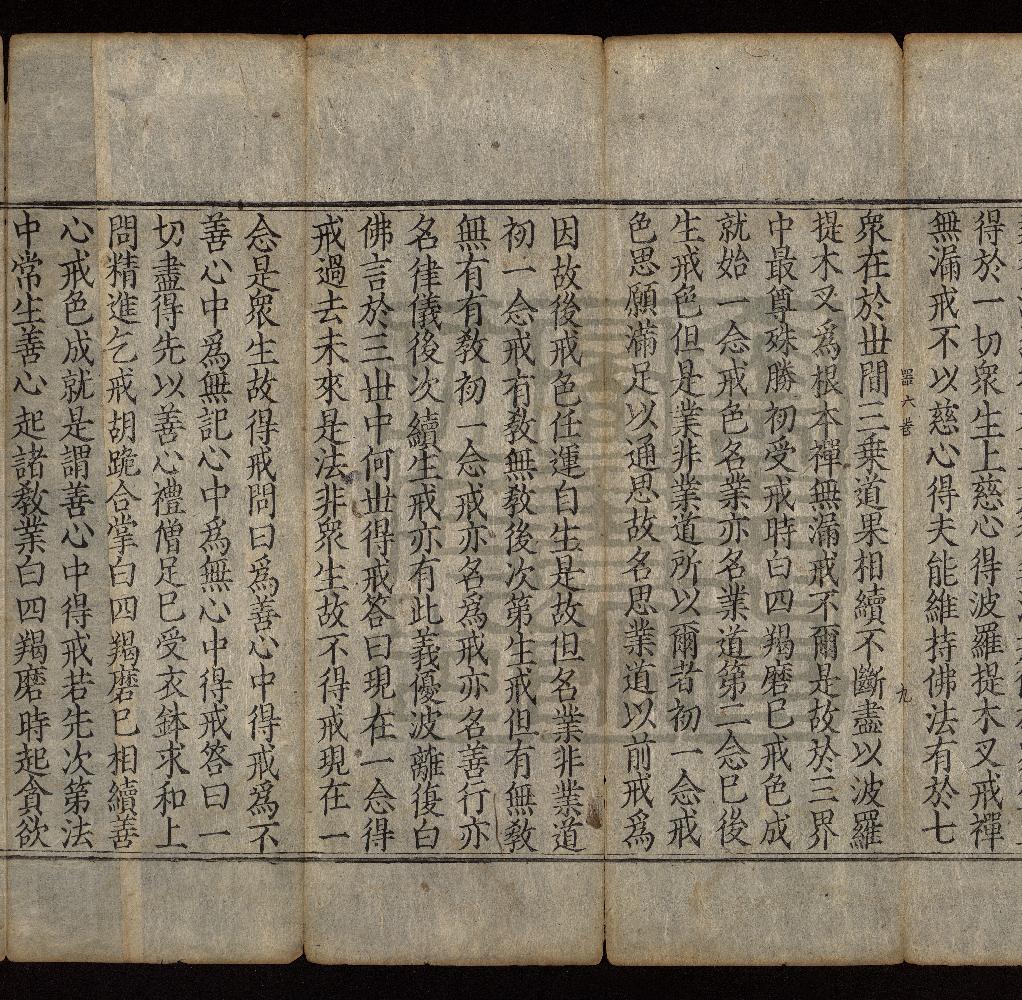 得於一切衆生上慈心得波羅提木叉戒禪
無漏戒不以慈心得夫能維持佛法有於七
噐六卷 九
衆在於丗間三乗道果相續不斷盡以波羅
提木叉爲根本禪無漏戒不爾是故於三界
中最尊殊勝初受戒時白四羯磨巳戒色成
就始一念戒色名業亦名業道第二念巳後
生戒色但是業非業道所以爾者初一念戒
色思願滿足以通思故名思業道以前戒爲
因故後戒色任運自生是故但名業非業道
初一念戒有敎無敎後次第生戒但有無敎
無有有敎初一念戒亦名爲戒亦名善行亦
名律儀後次續生戒亦有此義優波離復白
佛言於三丗中何丗得戒答曰現在一念得
戒過去未來是法非衆生故不得戒現在一
念是衆生故得戒問曰爲善心中得戒爲不
善心中爲無記心中爲無心中得戒答曰一
切盡得先以善心禮僧足巳受衣鉢求和上
問精進乞戒胡跪合掌白四羯磨巳相續善
心戒色成就是謂善心中得戒若先次第法
中常生善心起諸敎業白四羯磨時起貪欲